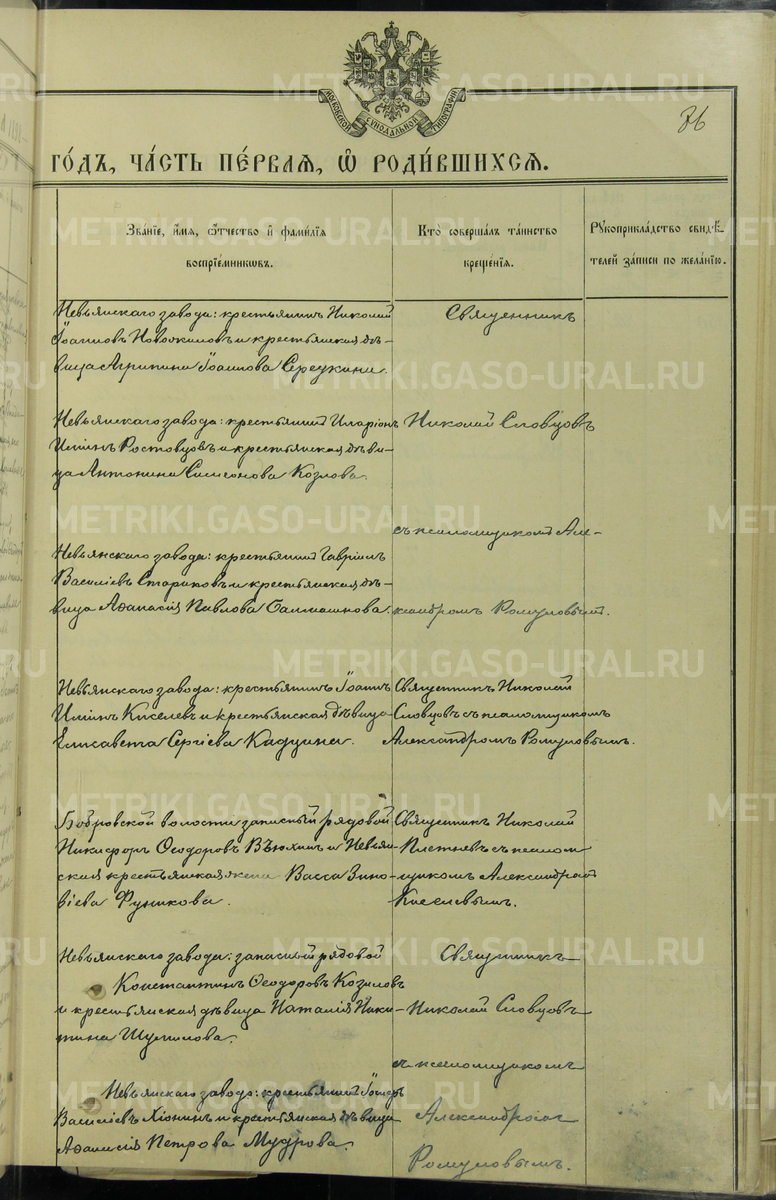 МОСКОВСКОЙ СѴНОДАЛЬНОЙ ТИПОГРАФІИ
36
ГОДЪ, ЧАСТЬ ПЕРВАЯ, Ѡ РОДИВШИХСЯ.
Званіе, имя, отчество и фамилія
воспріемниковъ.
Кто совершалъ таинство
крещенія.
Рукоприкладство свидѣ-
телей записи по желанію.
Невьянскаго завода: крестьянинъ Николай
Іоанновъ Новожиловъ и крестьянская дѣ-
вица Агрипина Іоаннова Середкина.
Невьянскаго завода: крестьянинъ Иларіонъ
Ильинъ Ростовцовъ и крестьянская дѣви-
ца Антонина Симеонова Козлова.
Невьянскаго завода: крестьянинъ Гавріилъ
Василіевъ Стариковъ и крестьянская дѣ-
вица Аѳанасія Павлова
Священникъ
Николай Словцовъ
съ псаломщикомъ Але-
ксандромъ Ромуловымъ.
Невьянскаго завода: крестьянинъ Іоаннъ
Ильинъ Киселевъ и крестьянская дѣвица
Елисавета Сергіева
Священникъ Николай
Словцовъ съ псаломщикомъ
Александромъ Ромуловымъ.
Бобровской волости запасный рядовой
Никифоръ Ѳеодоровъ Вьюхинъ и Невьян-
ская крестьянская жена Васса Зино-
віева
Священникъ Николай
Плетневъ съ псалом-
щикомъ Александромъ
Киселевымъ.
Невьянскаго завода: запасный рядовой
Константинъ Ѳеодоровъ Козиловъ
и крестьянская дѣвица Наталія Ники-
тина Шумилова.
Невьянскаго завода: крестьянинъ
Василіевъ и крестьянская дѣвица
Аѳанасія Петрова Мудрова.
Священникъ
Николай Словцовъ
съ псаломщикомъ
Александромъ
Ромуловымъ.
METRIKI.GASO-URAL.RU